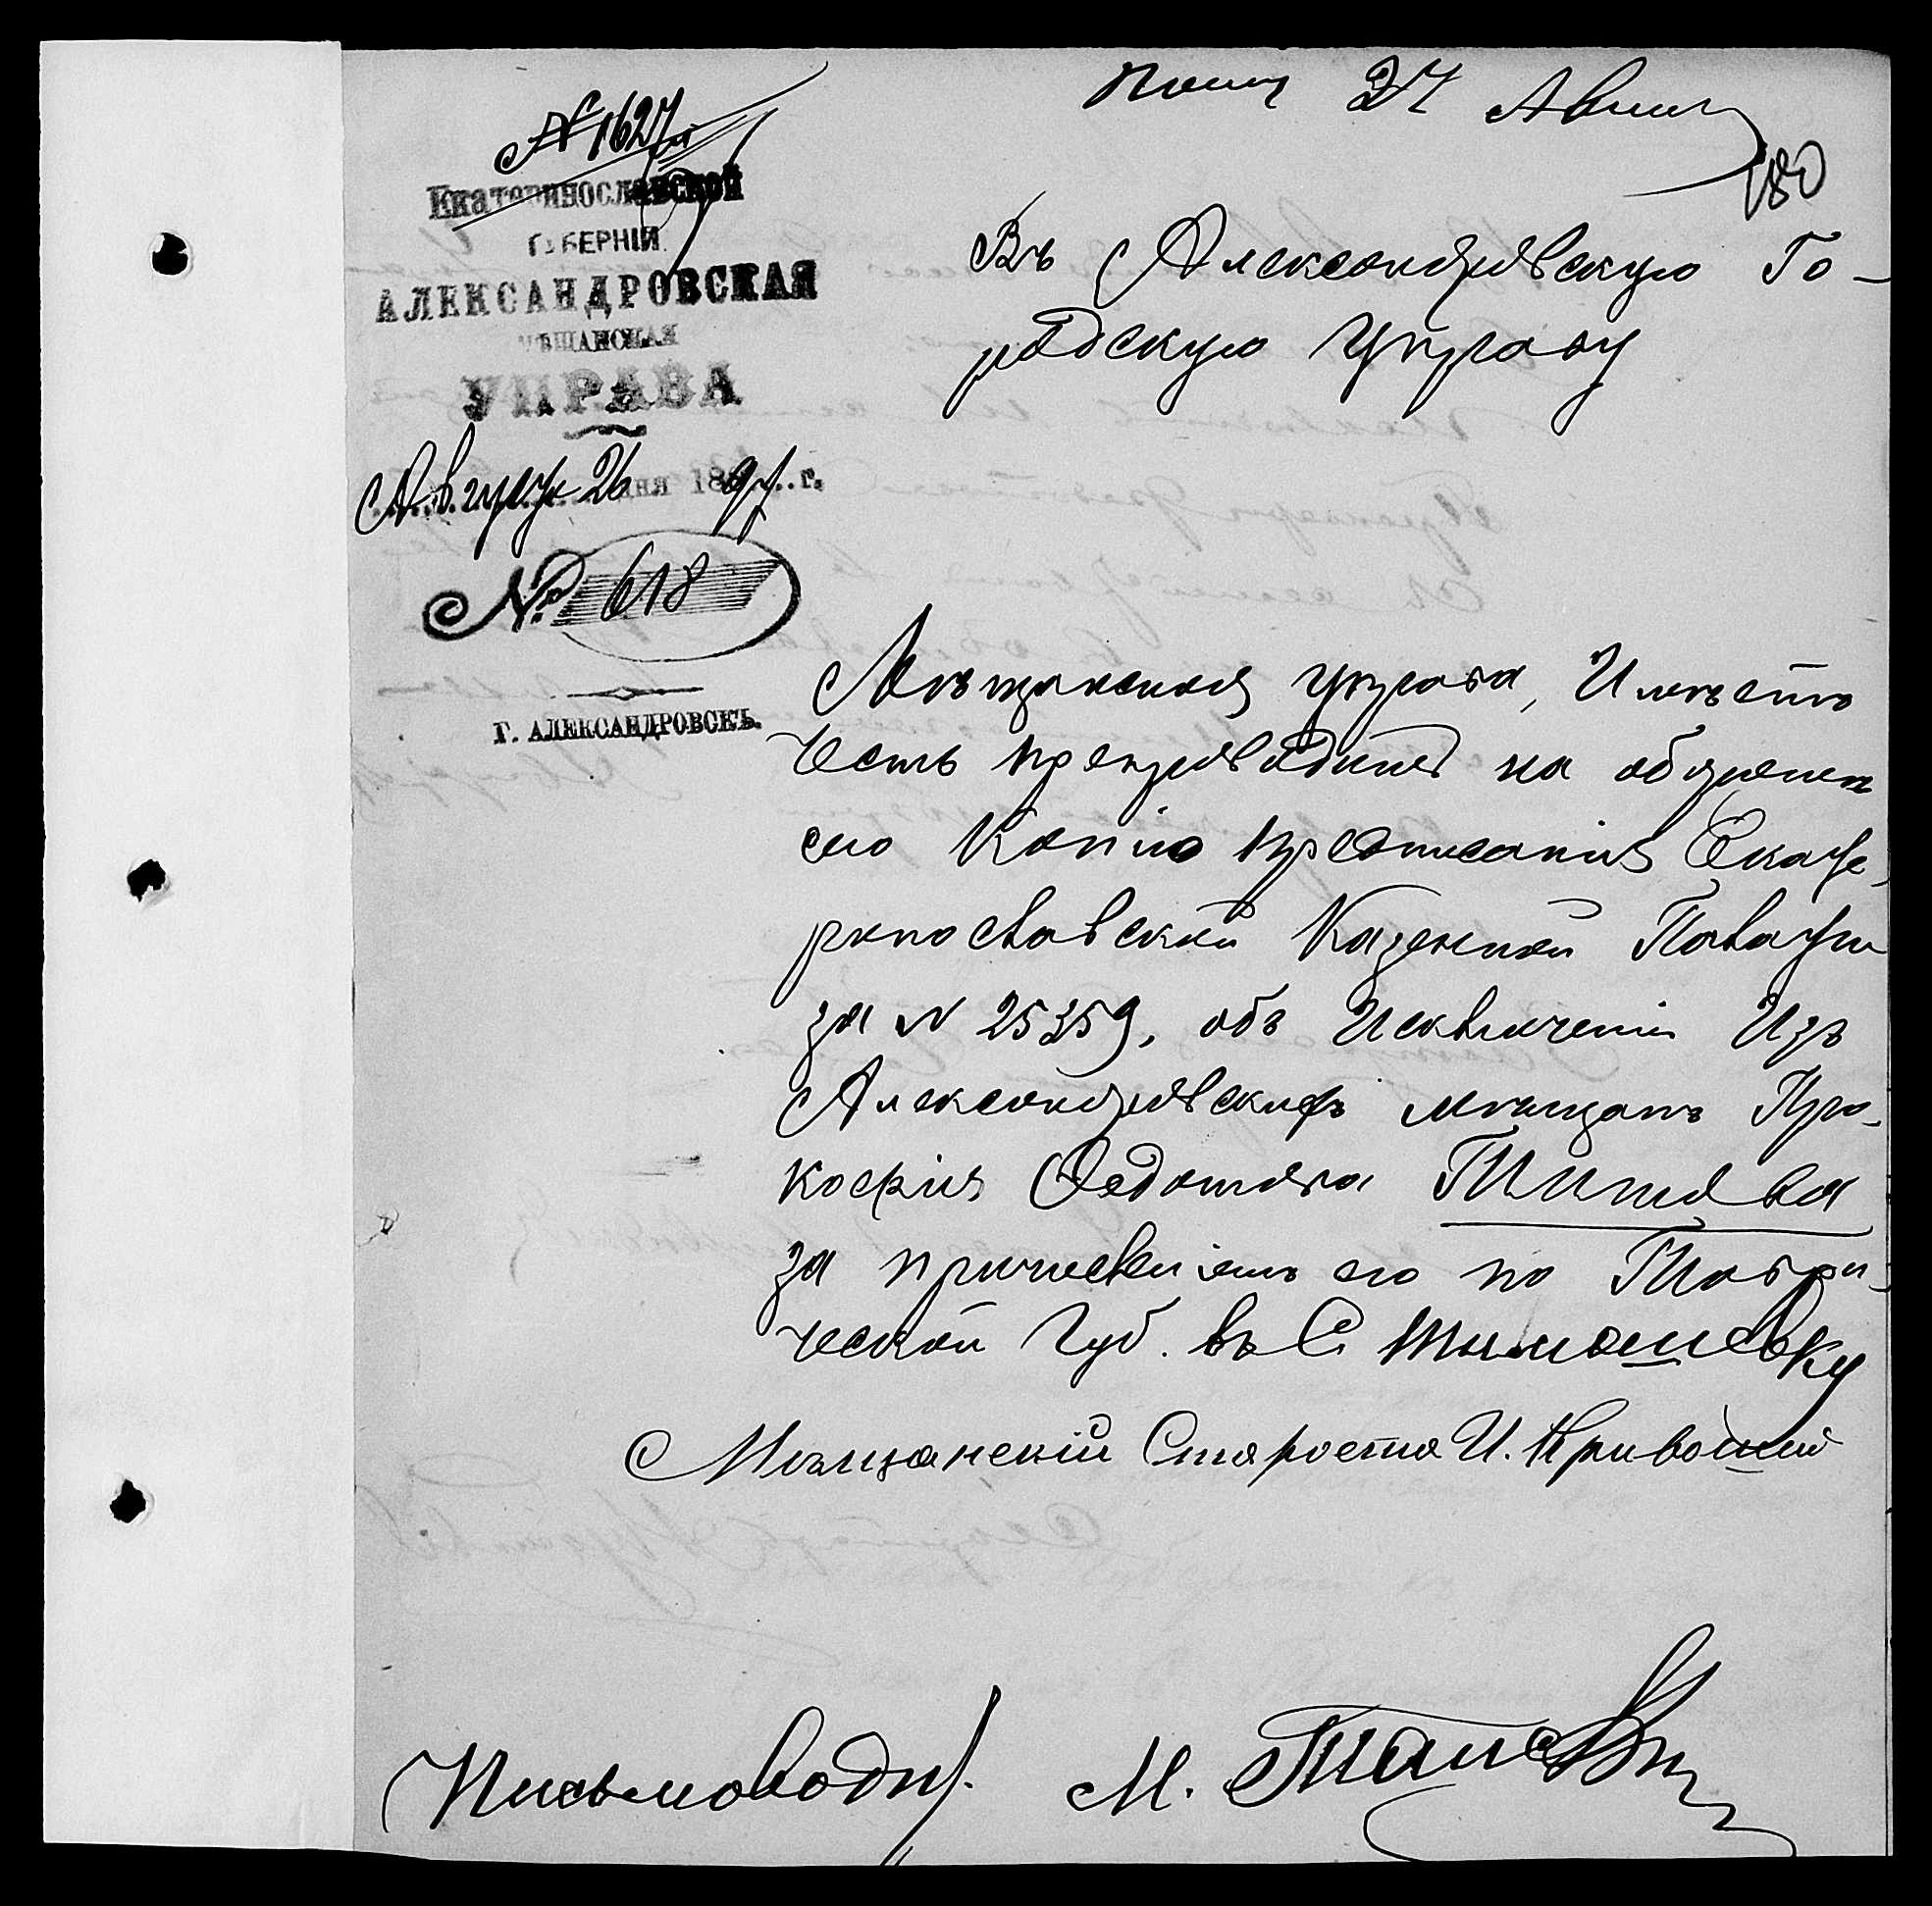 Пол 27 Авгус
180
№ 1627
Екатеринославской
ГУБЕРНІИ
АЛЕКСАНДРОВСКАЯ
МѢЩАНСКАЯ
УПРАВА
Августа 26 дня 1897 г.
№ 618
Г. АЛЕКСАНДРОВСКЪ.
Въ Александровскую Го-
родскую Управу
Мѣщанская управа, Имѣетъ
честь препроводить на
сію Копію предписанія Екате-
ринославской Казенной Палаты
за № 25359, объ Исключеніи Изъ
Александровскихъ мѣщанъ Про-
кофія Федотова Титова
за причисленіемъ его по Таври-
ческой Губ. въ С Тимошевку
Мѣщанскій Староста И.
Письмоводи.
М.